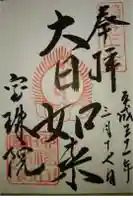 奉拝
平成二十一年
三月十七日
大日如来
宝珠院